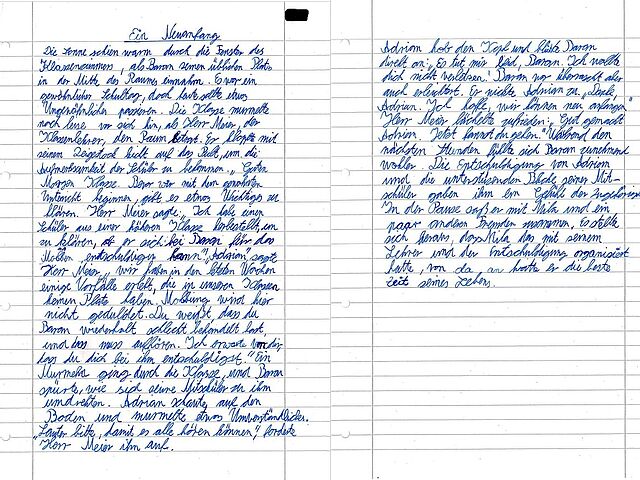 Ein Neuanfang
Die Sonne schien warm durch die Fenster des
Klassenzimmers, als Baran seinen üblichen Platz
in der Mitte des Raumes einnahm. Es war ein
gewöhnlicher Schultag, doch heute sollte etwas
Ungewöhnliches passieren. Die Klasse murmelte
noch leise vor sich hin, als Herr Meier, der
Klassenlehrer, den Raum betrat. Er klopfte mit
seinem Zeigestock hielt auf das Pult, um die
Aufmerksamkeit der Schüler zu bekommen. „Guten
Morgen Klasse. Bevor wir mit dem
Unterricht beginnen, gibt es etwas Wichtiges zu
klären. Herr Meier sagte: „Ich habe einen
Schüler aus einer höheren Klasse herbestellt, um
zu klären, ob er sich bei Baran für das
Mobben entschuldigen kann", Adrian", sagte
Herr Meier, „wir haben in den letzten Wochen
einige Vorfälle erlebt, die in unseren Klassen
keinen Platz haben. Mobbing wird hier
nicht geduldet. Du weißt, dass du
Baran wiederholt schlecht behandelt hast,
und das muss aufhören. Ich erwarte von dir,
dass du dich bei ihm entschuldigst." Ein
Murmeln ging durch die Klasse und Baran
spürte, wie sich seine Mitschüler zu ihm
umdrehten. Adrian schaute auf den
Boden und murmelte etwas Unverständliches.
„Lauter bitte, damit es alle hören können", forderte
Herr Meier ihn auf.
Adrian hob den Kopf und blickte Baran
direkt an: „Es tut mir leid, Baran. Ich wollte
dich nicht verletzen." Baran war überrascht aber
auch erleichtert. Er nickte Adrian zu. „Danke,
Adrian. Ich hoffe, wir können neu anfangen."
Herr Meier lächelte zufrieden: „Gut gemacht
Adrian. Jetzt kannst du gehen." Während den
nächsten Stunden fühlte sich Baran zunehmend
wohler. Die Entschuldigung von Adrian
und die unterstützenden Blicke seiner Mit-
schüler gaben ihm ein Gefühl der
In der Pause saß er mit Mila und ein
paar anderen Freunden zusammen. Es stellte
sich heraus, dass Mila das mit seinem
Lehrer und der Entschuldigung organisiert
hatte, von da an hatte er die beste
Zeit seines Lebens.